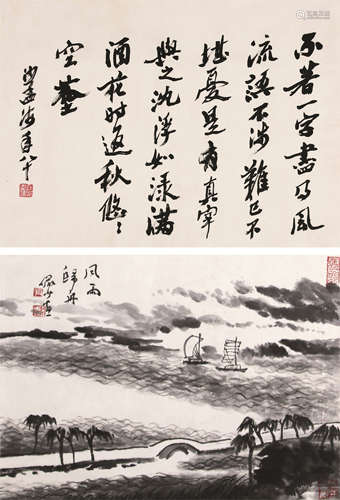 不著一字盡得風
流語不涉難已不
堪憂是有真宰
與之沈浮如淥滿
酒花時返秋悠〻
空塵
沙孟海年八十
風雨
歸舟
儼少